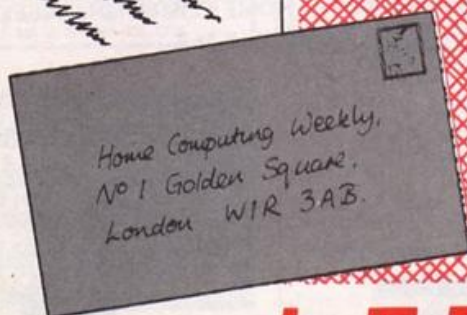 Home Computing Weekly,
No 1 Golden Square.
London W1R 3AB.